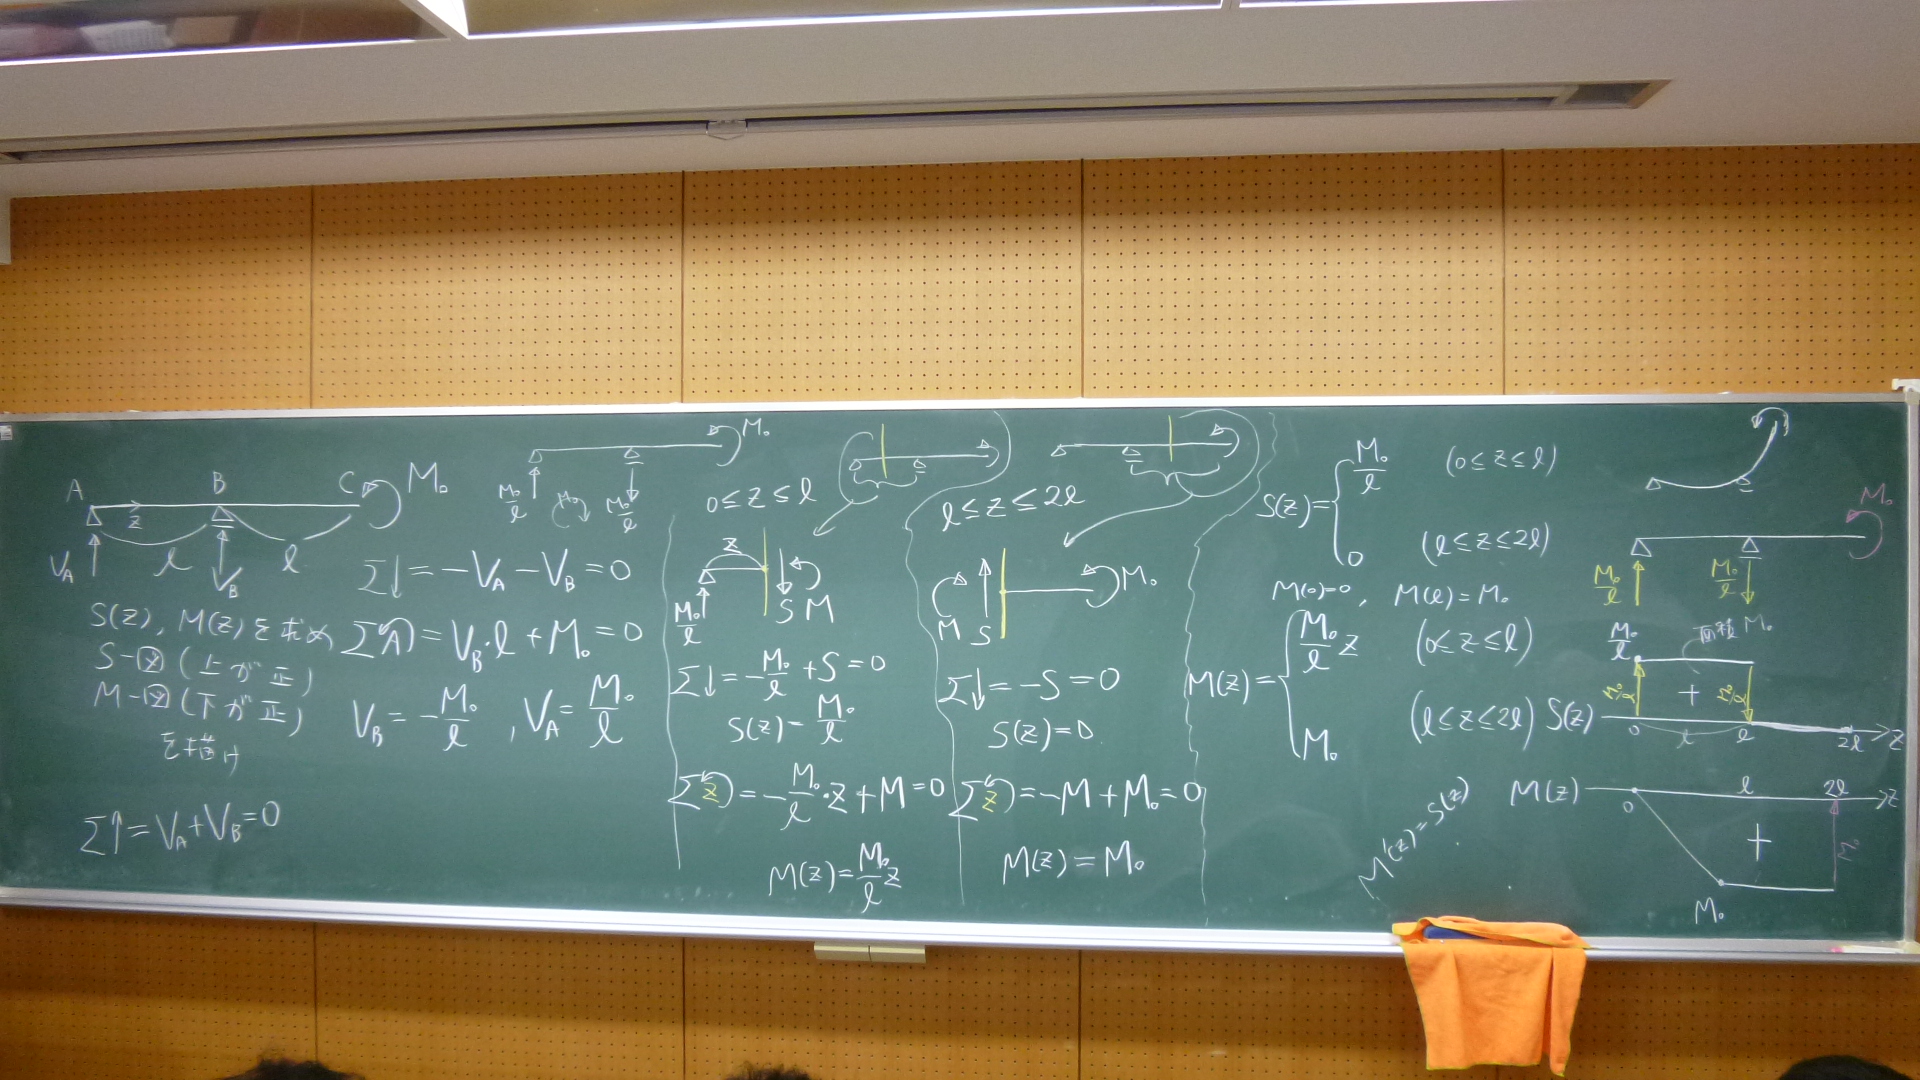 A B C M₀
z
l l
V_A V_B
S(z), M(z)を求め
S-図(上が正)
M-図(下が正)
を描け
Σ↑=V_A+V_B=0
M₀
M₀/l M₀ M₀/l
Σ↓=-V_A-V_B=0
Σ A)=V_B·l+M₀=0
V_B=-M₀/l, V_A=M₀/l
0≤z≤l
z
M₀/l S M
Σ↓=-M₀/l+S=0
S(z)=M₀/l
Σ z)=-M₀/l·z+M=0
M(z)=M₀/l z
l≤z≤2l
M S M₀
Σ↓=-S=0
S(z)=0
Σ z)=-M+M₀=0
M(z)=M₀
S(z)={ M₀/l (0≤z≤l)
0 (l≤z≤2l)
M(0)=0, M(l)=M₀
M(z)={ M₀/l z (0≤z≤l)
M₀ (l≤z≤2l)
M'(z)=S(z)
M₀
M₀/l M₀/l
M₀/l 面積M₀
M₀/l + M₀/l
S(z) 0 l l 2l z
M(z) 0 l 2l z
+ M₀
M₀